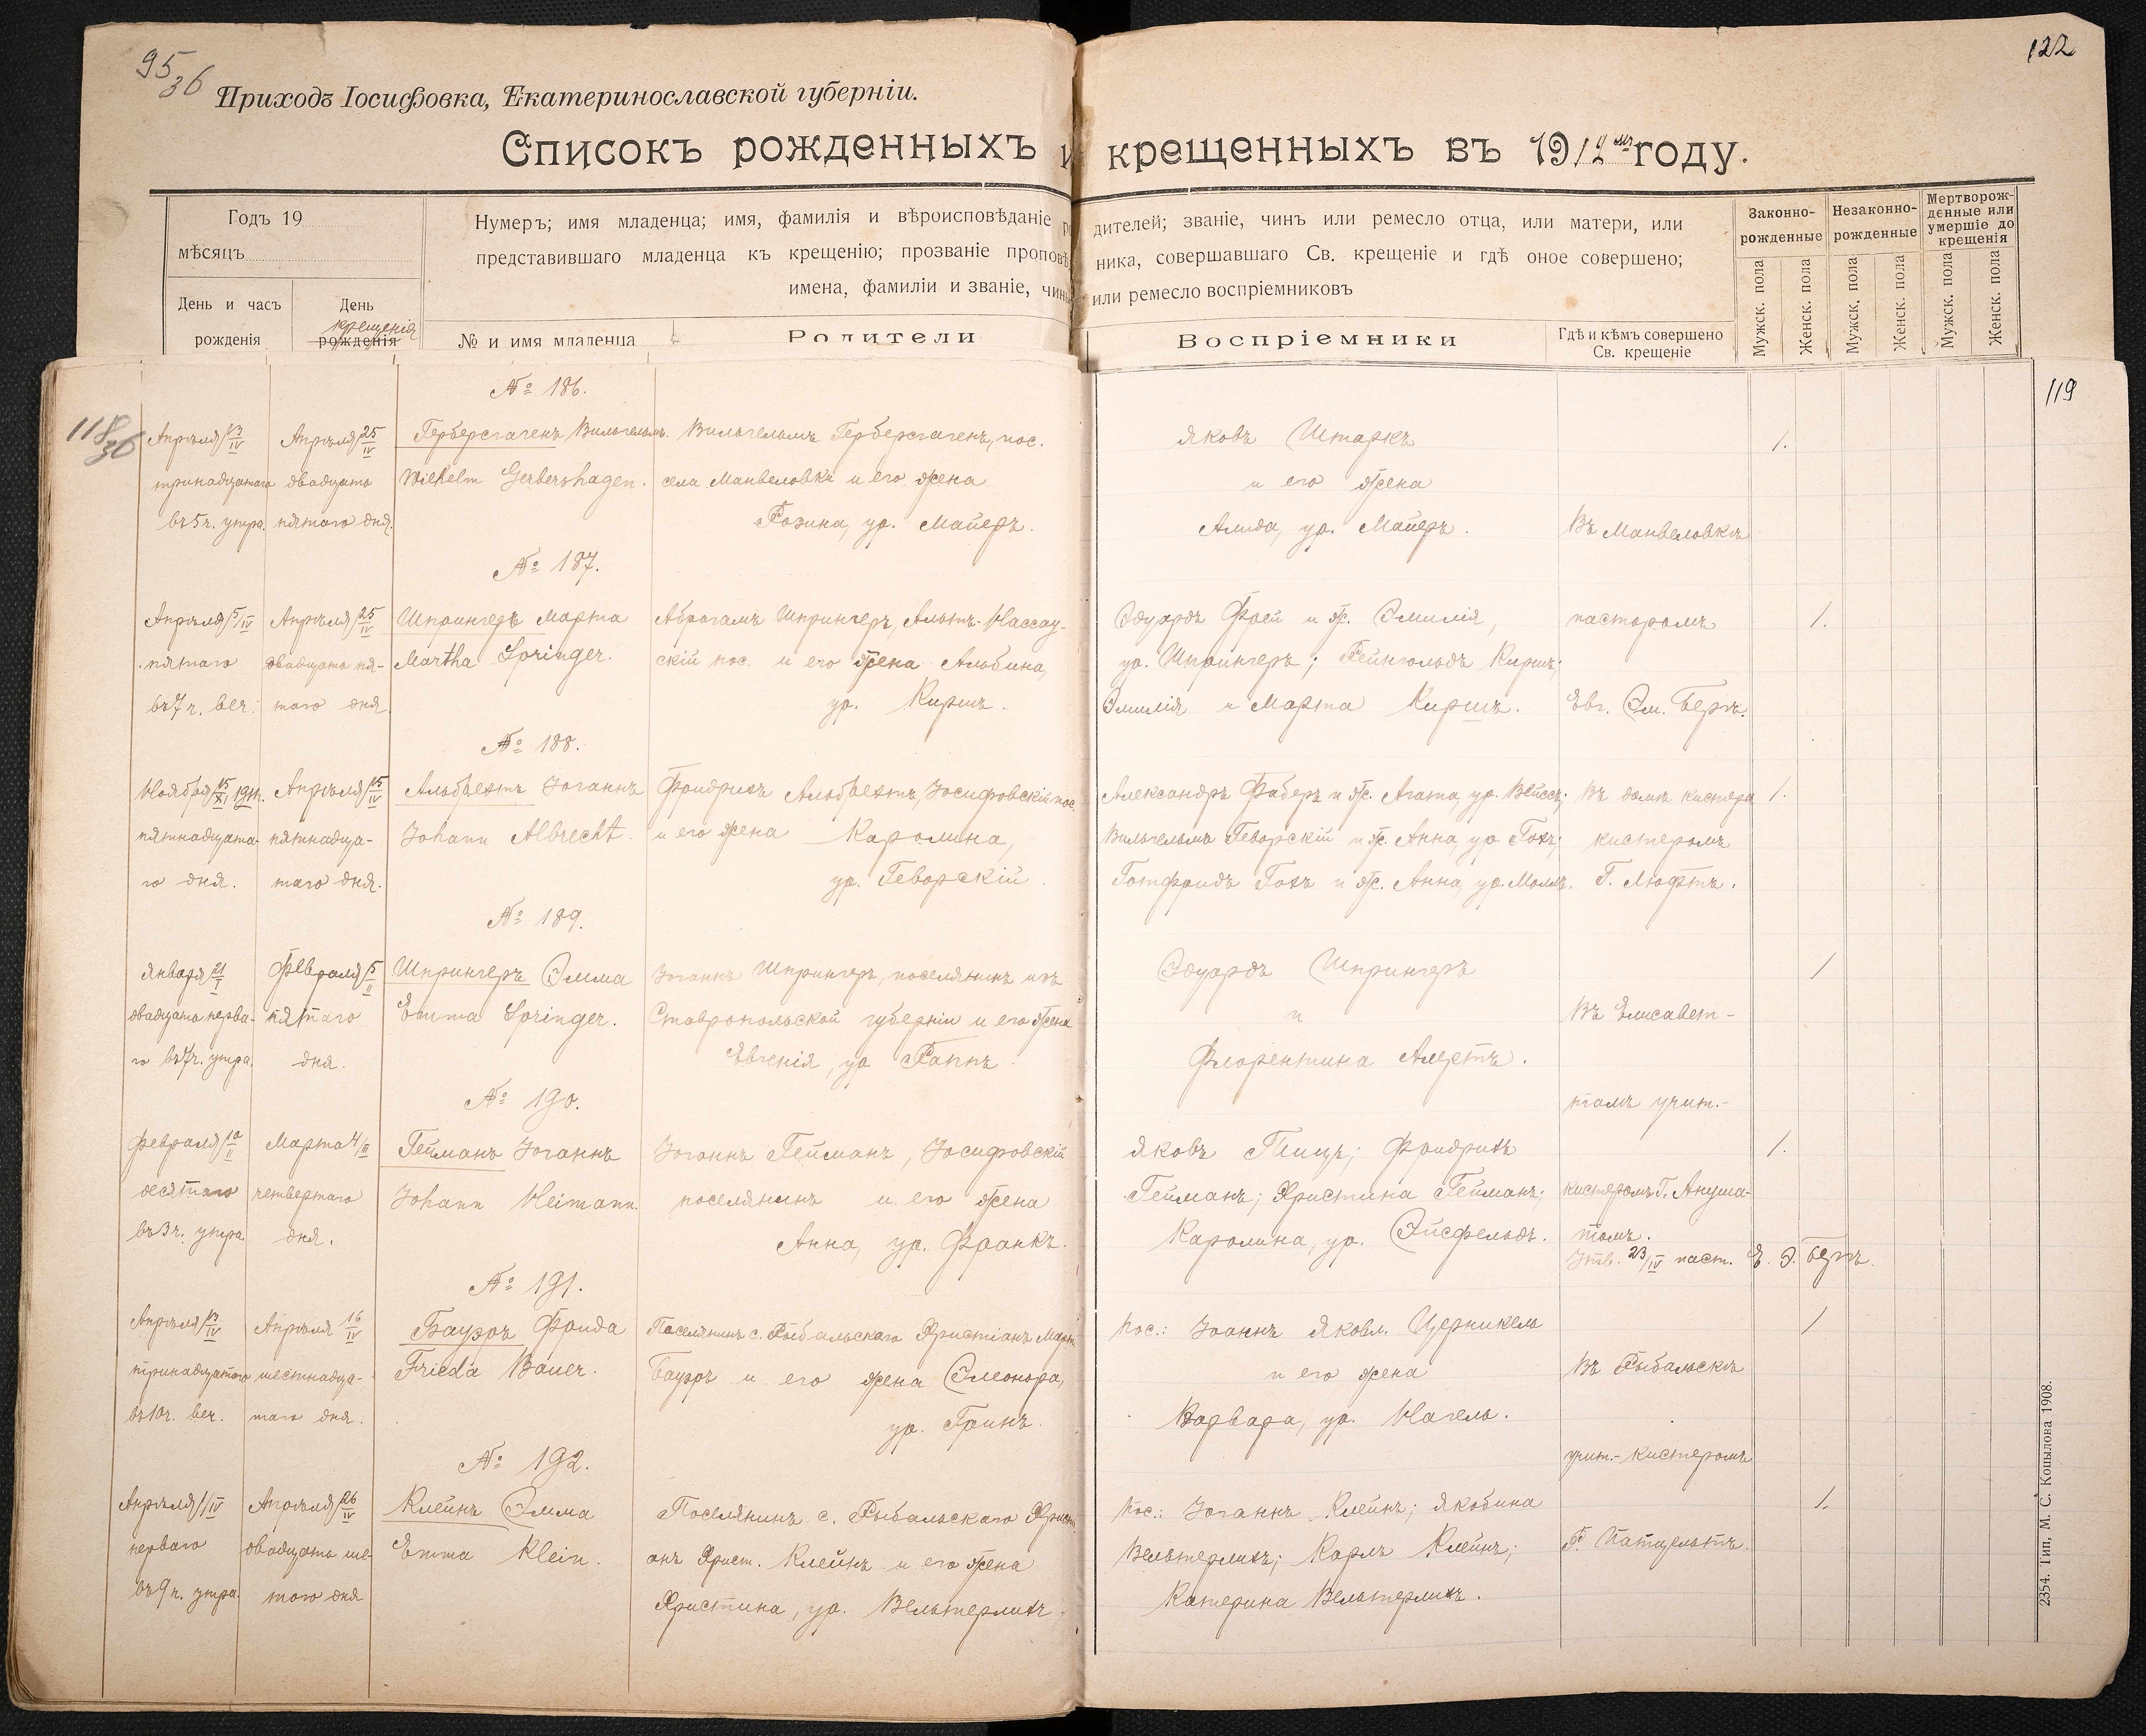 95/36
122
Приходъ Іосифовка, Екатеринославской губерніи.
Списокъ рожденныхъ и крещенныхъ въ 1912 году.
Годъ 19
мѣсяцъ
День и часъ рожденія
День крещенія рожденія
Нумеръ; имя младенца; имя, фамилія и вѣроисповѣданіе родителей; званіе, чинъ или ремесло отца, или матери, или
представившаго младенца къ крещенію; прозваніе проповѣдника, совершавшаго Св. крещеніе и гдѣ оное совершено;
имена, фамиліи и званіе, чинъ или ремесло воспріемниковъ
№ и имя младенца
Родители
Воспріемники
Гдѣ и кѣмъ совершено Св. крещеніе
Законно-рожденные
Незаконно-рожденные
Мертворож-денные или умершіе до крещенія
Мужск. пола
Женск. пола
Мужск. пола
Женск. пола
Мужск. пола
Женск. пола
118/36
119
№ 186.
Апрѣля 13/IV
тринадцатаго
въ 5 ч. утра.
Апрѣля 25/IV
двадцать
пятаго дня.
Герберсгагенъ Вильгельмъ.
Wilhelm Gerbershagen.
Вильгельмъ Герберсгагенъ, пос.
села Манвеловки и его жена
Розина, ур. Майеръ.
Яковъ Штаркъ
и его жена
Алида, ур. Майеръ.
Въ Манвеловкѣ
1.
№ 187.
Апрѣля 5/IV
пятаго
въ 7 ч. веч.
Апрѣля 25/IV
двадцать пя-
таго дня.
Шпрингеръ Марта
Martha Springer.
Абрагамъ Шпрингеръ, Альтъ-Нассау-
скій пос. и его жена Альбина,
ур. Киршъ.
Эдуардъ Фрей и ж. Эмилія,
ур. Шпрингеръ; Рейнгольдъ Киршъ;
Эмилія и Марта Киршъ.
пасторомъ
Евг. Эм. Бергъ.
1.
№ 188.
Ноября 15/XI 1911.
пятнадцата-
го дня.
Апрѣля 15/IV
пятнадца-
таго дня.
Альбрехтъ Іоганнъ
Johann Albrecht.
Фридрихъ Альбрехтъ, Іосифовскій пос.
и его жена Каролина,
ур. Геворскій.
Александръ Фаберъ и ж. Агата, ур. Вейссъ;
Вильгельмъ Геворскій и ж. Анна, ур. Гохъ;
Готфридъ Гохъ и ж. Анна, ур. Моллъ.
Въ домѣ кистера
кистеромъ
Г. Люфтъ.
1.
№ 189.
Января 21/I
двадцать перва-
го въ 7 ч. утра.
Февраля 5/II
пятаго
дня.
Шпрингеръ Эмма
Emma Springer.
Іоганнъ Шпрингеръ, поселянинъ изъ
Ставропольской губерніи и его жена
Евгенія, ур. Раппъ.
Эдуардъ Шпрингеръ
и
Флорентина
Въ Елисавет-
талѣ учит.-
1
№ 190.
Февраля 10/II
десятаго
въ 3 ч. утра
Марта 4/III
четвертаго
дня.
Гейманъ Іоганнъ
Johann Heimann.
Іоганнъ Гейманъ, Іосифовскій
поселянинъ и его жена
Анна, ур. Франкъ.
Яковъ Тицъ; Фридрихъ
Гейманъ; Христина Гейманъ;
Каролина, ур. Эйсфельдъ.
кистеромъ Г.
Утв. 23/IV паст. Е. Э. Бергъ.
1.
№ 191.
Апрѣля 13/IV
тринадцатаго
въ 10 ч. веч.
Апрѣля 16/IV
шестнадца-
таго дня.
Бауэръ Фрида
Frieda Bauer.
Поселянинъ с. Рыбальскаго Христіанъ Март.
Бауэръ и его жена Элеонора,
ур. Гринъ.
Пос.: Іоаннъ Яковл. Церникель
и его жена
Варвара, ур. Нагель.
Въ Рыбальскѣ
учит.-кистеромъ
1
№ 192.
Апрѣля 1/IV
перваго
въ 9 ч. утра.
Апрѣля 26/IV
двадцать шес-
того дня
Клейнъ Эмма
Emma Klein.
Поселянинъ с. Рыбальскаго Христі-
анъ Христ. Клейнъ и его жена
Христина, ур. Вельтерлихъ.
Пос.: Іоганнъ Клейнъ; Якобина
Вельтерлихъ; Карлъ Клейнъ;
Катерина Вельтерлихъ.
Г. Патцельтъ.
1.
2354. Тип. М. С. Копылова 1908.